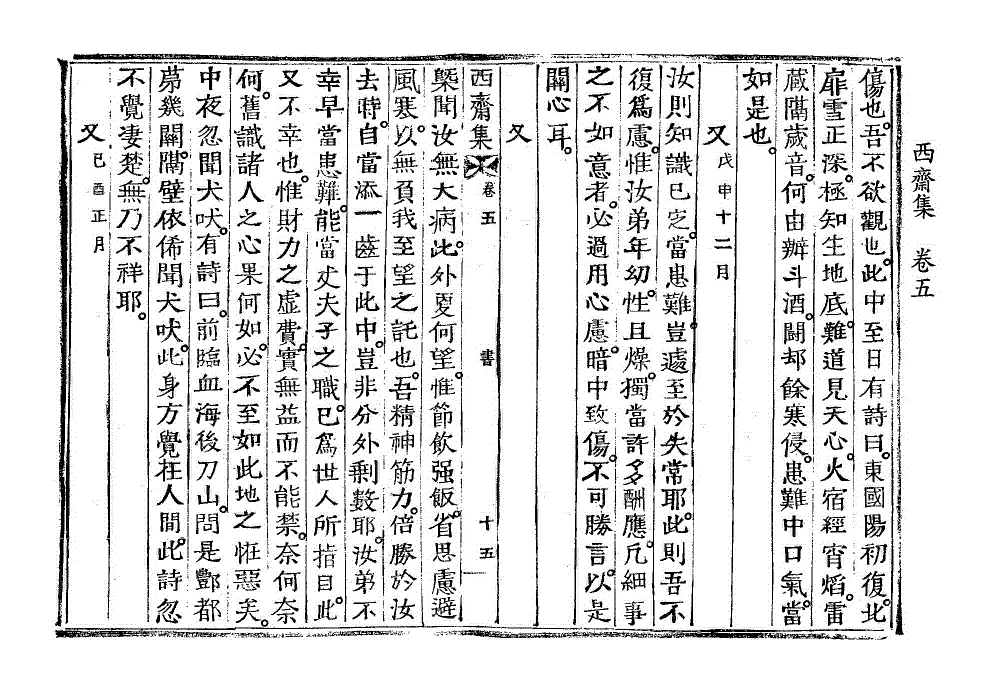 西齋集 卷五
傷也。吾不欲觀也。此中至日有詩曰。東國陽初復。北
扉雪正深。極知生地底。難道見天心。火宿經宵焰。雷
藏隔歲音。何由辦斗酒。鬪却餘寒侵。患難中口氣。當
如是也。
又 戊申十二月
汝則知識已定。當患難。豈遽至於失常耶。此則吾不
復爲慮。惟汝弟年幼。性且燥。獨當許多酬應。凡細事
之不如意者。必過用心慮。暗中致傷。不可勝言。以是
關心耳。
又
西齋集 卷五 書 十五
槩聞汝無大病。此外夏何望。惟節飮强飯。省思慮避
風寒。以無負我至望之託也。吾精神筋力。倍勝於汝
去時。自當添一齒于此中。豈非分外剩數耶。汝弟不
幸早當患難。能當丈夫子之職。已爲世人所指目。此
又不幸也。惟財力之虛費。實無益而不能禁。奈何奈
何。舊識諸人之心果何如。必不至如此地之恠惡矣。
中夜忽聞犬吠。有詩曰。前臨血海後刀山。問是酆都
第幾關。隔壁依俙聞犬吠。此身方覺在人間。此詩忽
不覺凄楚。無乃不祥耶。
又 己酉正月